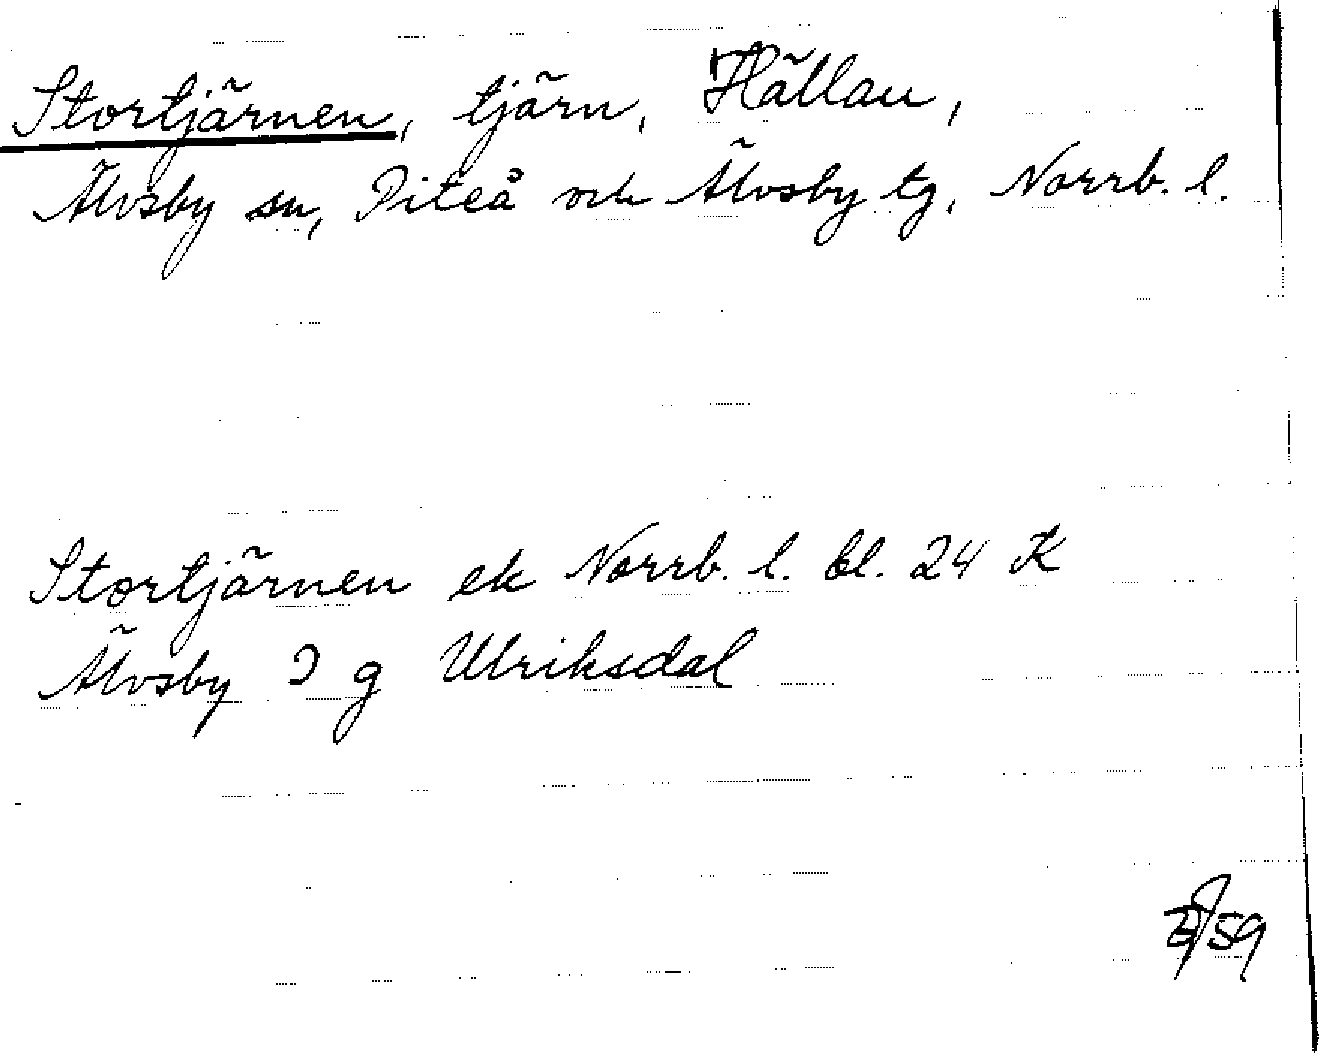 Stortjärnen, tjärn, Hällan,
Älvsby sn, Piteå och Älvsby tg, Norrb. l.
Stortjärnen ek Norrb. l. bl. 24 K
Älvsby J g Ulriksdal
59